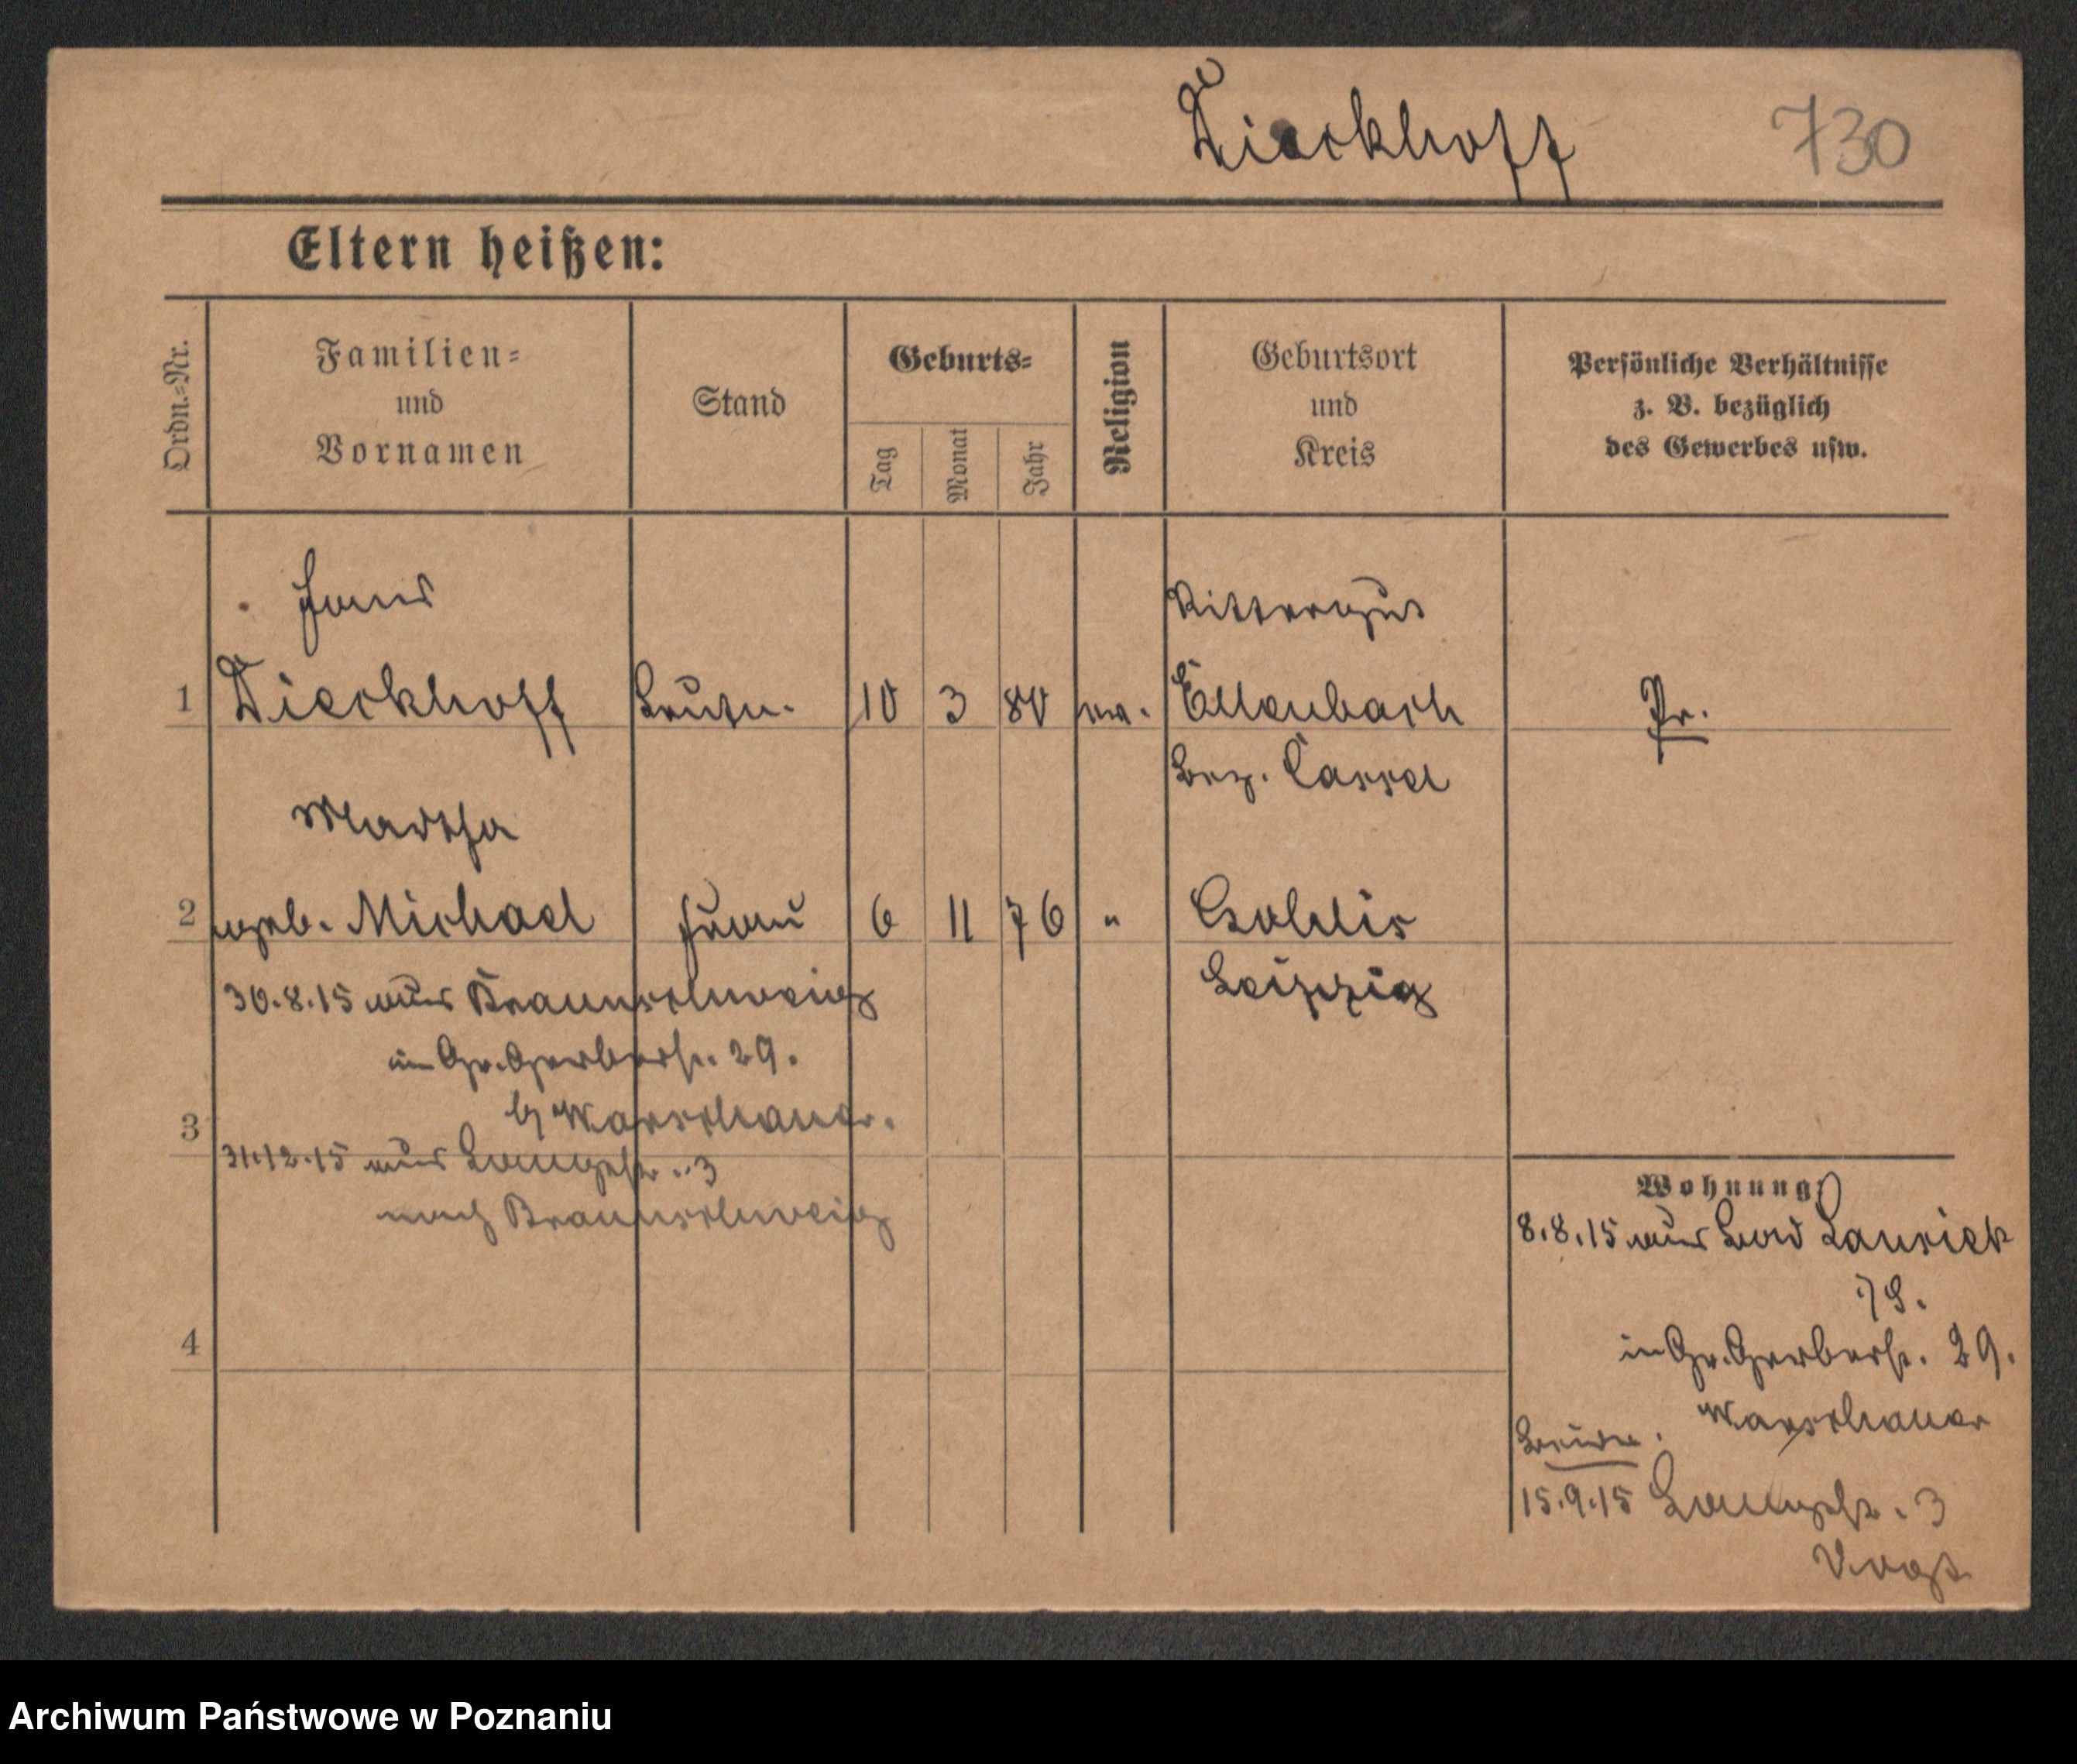 Dieckhoff 730
Eltern heißen:
Ordn.=Nr.
Familien=
und
Vornamen
Stand
Geburts=
Tag
Monat
Jahr
Religion
Geburtsort
und
Kreis
Persönliche Verhältnisse
z. B. bezüglich
des Gewerbes usw.
Hans
Rittergut
1 Dieckhoff Leutn. 10 3 80 ev. Ellenbach Pr.
Bez. Cassel
Martha
2 geb. Michael Frau 6 11 76 " Gohlis
Leipzig
30.8.15 aus Braunschweig
in Gr. Gerberstr. 29.
b/ Warschauer.
3
31.12.15 aus Langestr. 3
nach Braunschweig
4
Wohnung:
8.8.15 aus Bad
in Gr. Gerberstr. 29.
Warschauer
15.9.15 Langestr. 3
Vogt
Archiwum Państwowe w Poznaniu